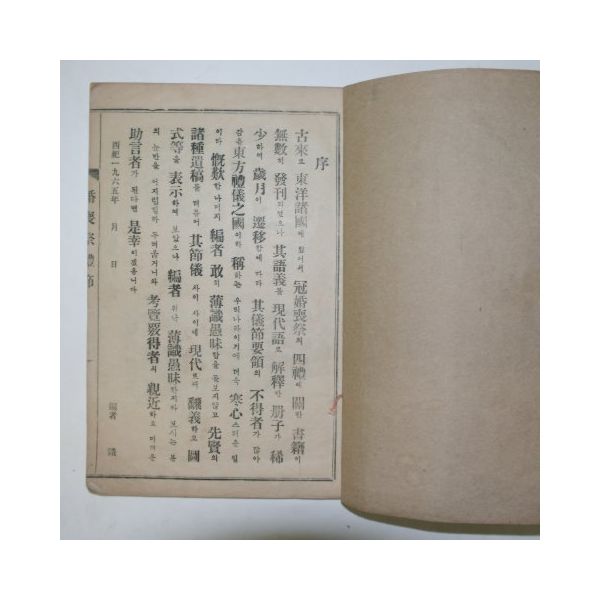 序
古來로 東洋諸國에 있어서 冠婚喪祭의 四禮에 關한 書籍이
無數히 發刊되었으나 其語義를 現代語로 解釋한 册子가 稀
少하여 歲月이 遷移함에 따라 其儀節要領의 不得者가 많아
감은 東方禮儀之國이라 稱하는 우리나라이기에 더욱 寒心스러운 일
이다 慨歎한 나머지 編者 敢히 薄識愚昧함을 돌보지않고 先賢의
諸種遺稿를 더듬어 其節儀 사이 사이에 現代 飜義하고 圖
式等을 表示하여 보았으나 編者 워낙 薄識愚昧한지라 보시는 분
의 눈만을 어지럽힐까 두려웁거니와 考覽要得者의 親近하고 미더운
助言者가 된다면 是幸이겠읍니다
西紀一九六五年 月 日
編者 識
婚喪祭禮節